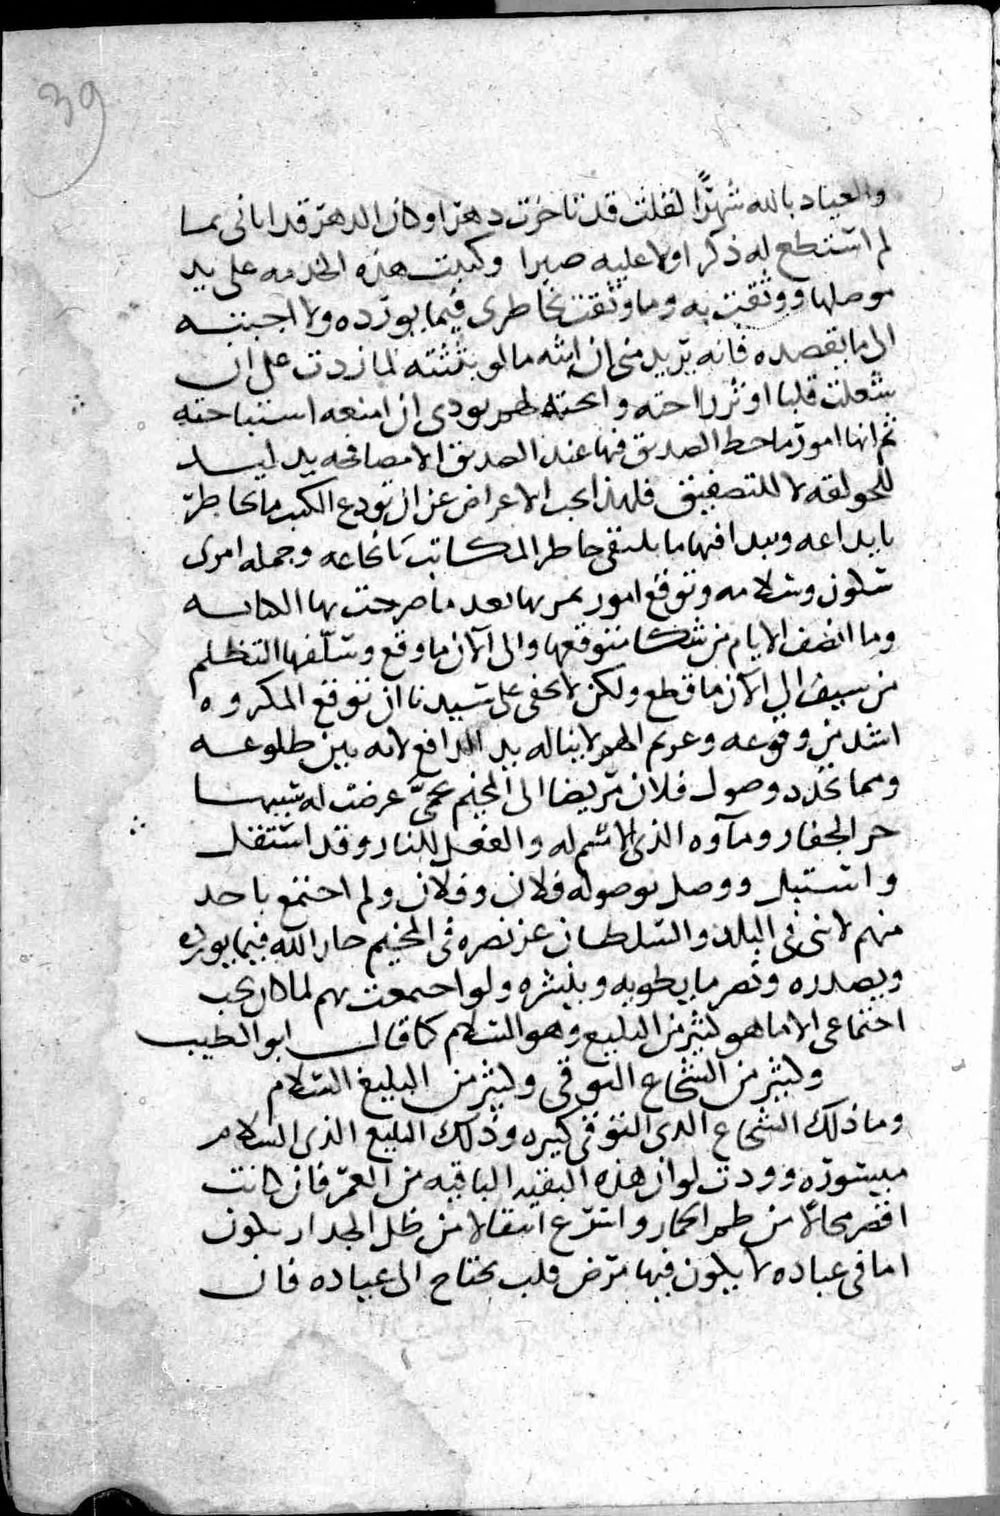 39
والعياد بالله شهرًا لقلت قد تاخرت دهرا وكان الدهر قد اتانى بما
لم استطع له ذكرا ولا عليه صبرا وكتبت هذه الخدمه على يد
موصلها ووثقت به وما وثقت بخاطرى فيما يورده ولا اجبته
الى ما يقصده فانه يريد منى ان ابثه ما لو بثثته لما زدت على ان
شغلت قلبا او ثر راحته وابحته يودى ان امنعه استباحته
ثم انها امور ما حط الصديق فيها عند الصديق الا مصافحه يد ليست
للحولقه لا للتصفيق فلهذا يجب الاعراض عن ان تودع الكتب ما يخاطر
بايداعه ويبدا فيها ما يلتقى خاطر المكاتب بانخاعه وجمله امرى
سكون وسلامه وتوقع امور يمر بها بعد ما صرحت بها الكتابه
وما انصف الايام من شكا متوقعها والى الآن ما وقع وسلفها التظلم
من سيف الى الآن ما قطع ولكن لا يخفى على سيدنا ان توقع المكروه
اشد من وقوعه وغريم الهم لا يناله يد الدافع لانه بين ضلوعه
ومما تجدد وصول فلان مريضا الى المخيم بحمىّ عرضت له سببها
حر الجفار ومآوه الذى الاسم له والفعل للنار وقد استقل
واستبل ووصل بوصوله فلان وفلان ولم اجتمع باحد
منهم لاننى فى البلد والسلطان عز نصره فى المخيم خار الله فيما يورده
ويصدره ونصر ما يطويه وينشره ولو اجتمعت بهم لما كان يجب
اجتماعى الا ما هو كثير من البليغ وهو السلام كما قال ابو الطيب
وكثير من الشجاع التوقى وكثير من البليغ السلام
وما ذلك الشجاع الذى التوقى كثيره وذلك البليغ الذى السلام
ميسوره ووددت لو ان هذه البقيه الباقيه من العمر فان كانت
اقصر مجالا من ظمء الحمار واسرع انتقالا من ظل الجدار يكون
اما فى عباده لا يكون فيها مرض قلب يحتاج الى عياده فان